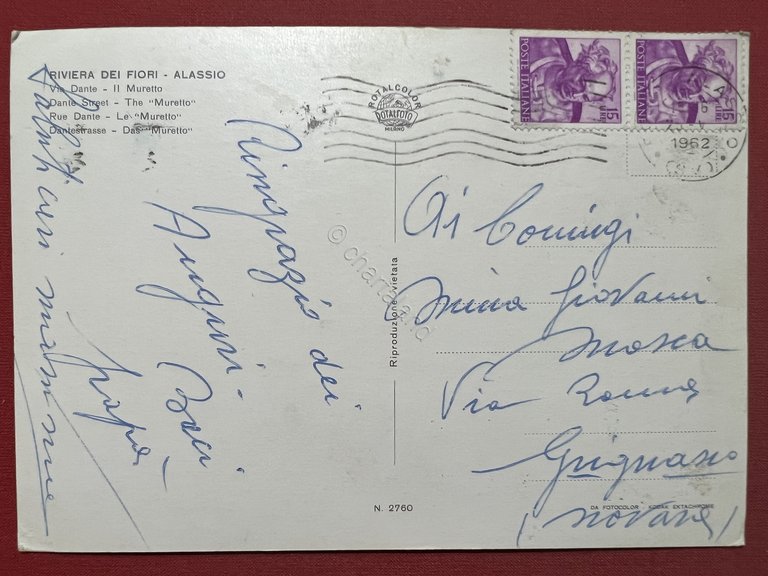 RIVIERA DEI FIORI - ALASSIO
Via Dante - Il Muretto
Dante Street - The "Muretto"
Rue Dante - Le "Muretto"
Dantestrasse - Das "Muretto"
ROTALCOLOR
ROTALFOTO
MILANO
POSTE ITALIANE
15 LIRE
POSTE ITALIANE
15 LIRE
1962
Ringrazio dei
Auguri -
Baci
papà
Riproduzione vietata
Ai Coniugi
Mina Giovanni
Mosca
Via Roma
Grignasco
(Novara)
N. 2760
DA FOTOCOLOR KODAK EKTACHROME